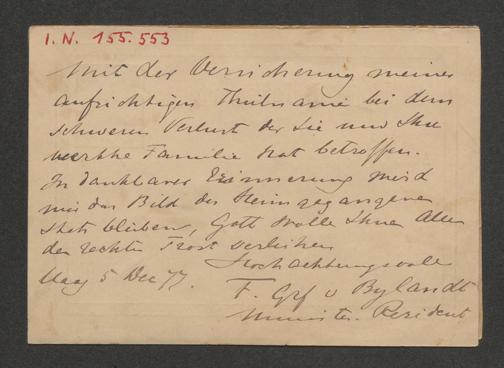 I. N. 155.553
Mit der Versicherung meiner
aufrichtigen Theilname bei dem
schweren Verlust der Sie und Ihre
werthe Familie hat betroffen.
In dankbarer Erinnerung wird
mir das Bild des Heimgegangenen
stets bleiben, Gott wolle Ihnen Allen
den rechten Trost verleihen
Hochachtungsvoll
Haag 5 Dec 77.
F. Grf v Bylandt
Minister-Resident